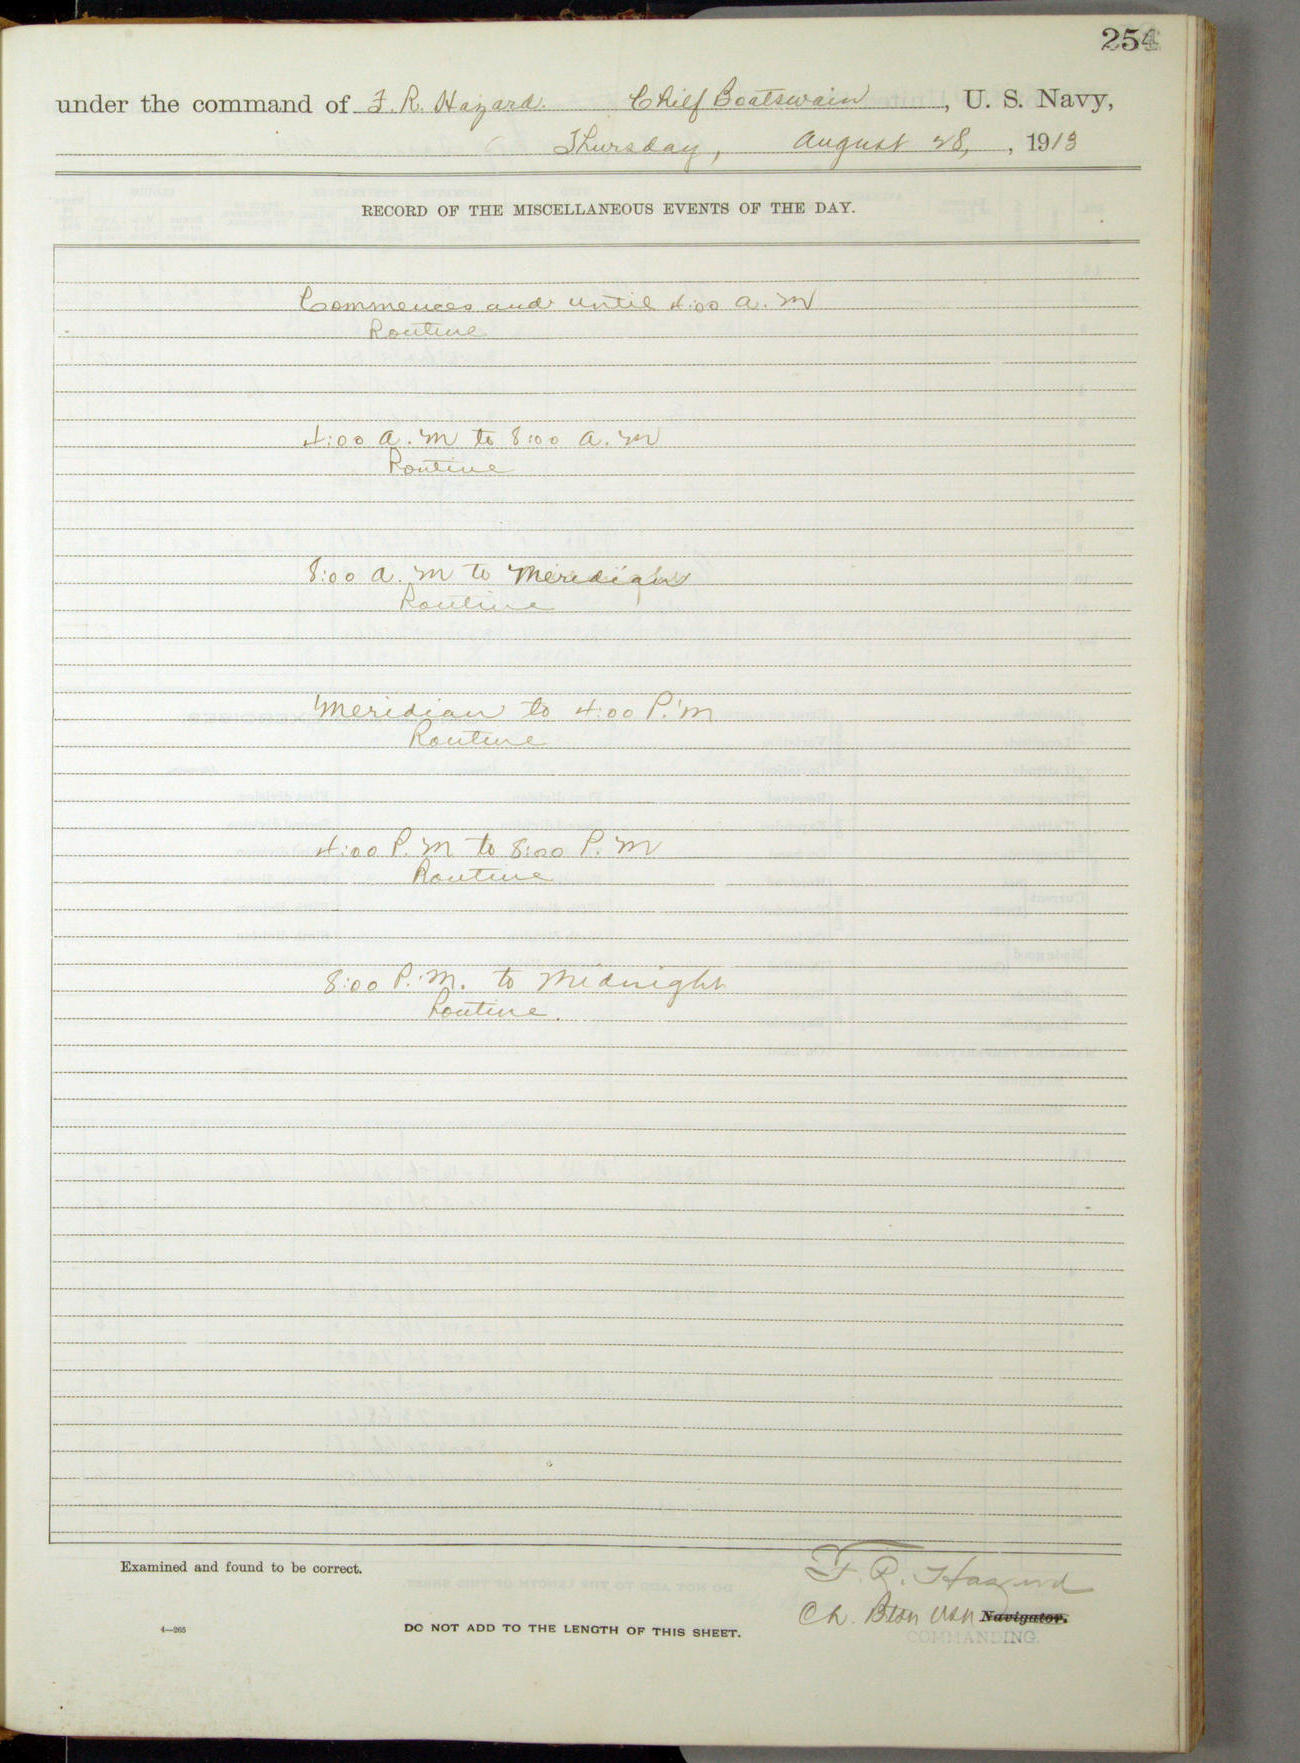 254
under the command of F. R. Hazard. Chief Boatswain, U. S. Navy,
Thursday, August 28, , 1913
RECORD OF THE MISCELLANEOUS EVENTS OF THE DAY.
Commences and until 4:00 a.m
Routine
4:00 a.m to 8:00 a.m
Routine
8:00 a.m to Meridian
Routine
Meridian to 4:00 P.m
Routine
4:00 P.m to 8:00 P.m
Routine
8:00 P.m. to Midnight
Routine.
Examined and found to be correct.
F. R. Hazard
Ch. Btsn USN Navigator.
COMMANDING.
4—265
DO NOT ADD TO THE LENGTH OF THIS SHEET.